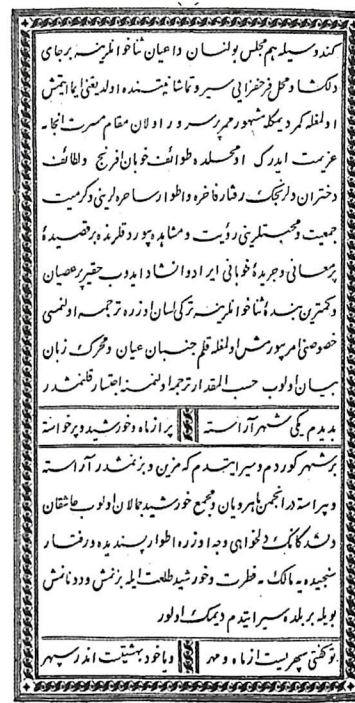 کندوسیله هم مجلس بولنان داعیان ثناخوانلرینه برجای
دلکشا ومحل فرحفزایی سیر وتماشا نیتنده اولدیغنی ایما ایتمش
اولمغله کمر دیمکله مشهور ممر پرسرور اولان مقام مسرت انجامه
عزیمت ایدرک اومحلده طوائف خوبان افرنج ولطائف
دختران دلرنجک رفتار فاخره واطوار ساحره لرینی وکرمیت
جمعیت ومحبتلرینی رؤیت ومشاهده بیوردقلرنده برقصیدهٔ
پرمعانی وجریدهٔ خوبانی ایراد وانشاد ایدوب حقیر پرعصیان
وکمترین بندهٔ ثناخوانلرینه ترکی لسان اوزره ترجمه اولنمسی
خصوصنی امر بیورمش اولمغله قلم جنبان عیان ومحرک زبان
بیان اولوب حسب المقدار ترجمه اولنمسنه اجتسار قلنمشدر
بدیدم یکی شهر آراسته پر از ماه وخورشید وپرخواسته
برشهر کوردم وسیر ایتدم که مزین وبزنمشدر آراسته
وپیراسته در انجمن ماهرویان ومجمع خورشید جمالان اولوب عاشقان
دلشدکانک دلخواهی وجه اوزره اطوار پسندیده ورفتار
سنجیده یه مالک مه فطرت وخورشید طلعت ایله بزنمش ودونانمش
بویله بر بلده سیر ایتدم دیمک اولور
تو گفتی سپهریست از ماه ومهر ویا خود بهشتیست اندر سپهر